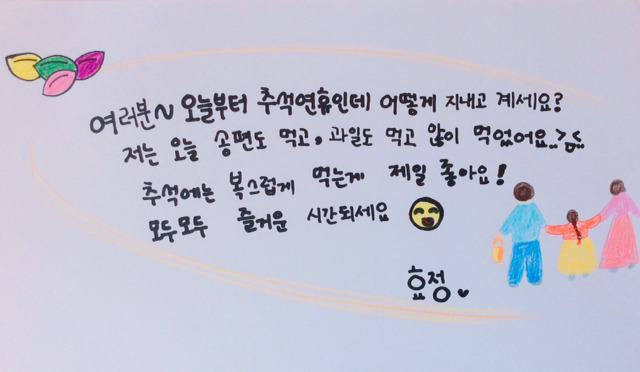 여러분~ 오늘부터 추석연휴인데 어떻게 지내고 계세요?
저는 오늘 송편도 먹고, 과일도 먹고 많이 먹었어요..>_<..
추석에는 복스럽게 먹는게 제일 좋아요!
모두모두 즐거운 시간되세요
효정